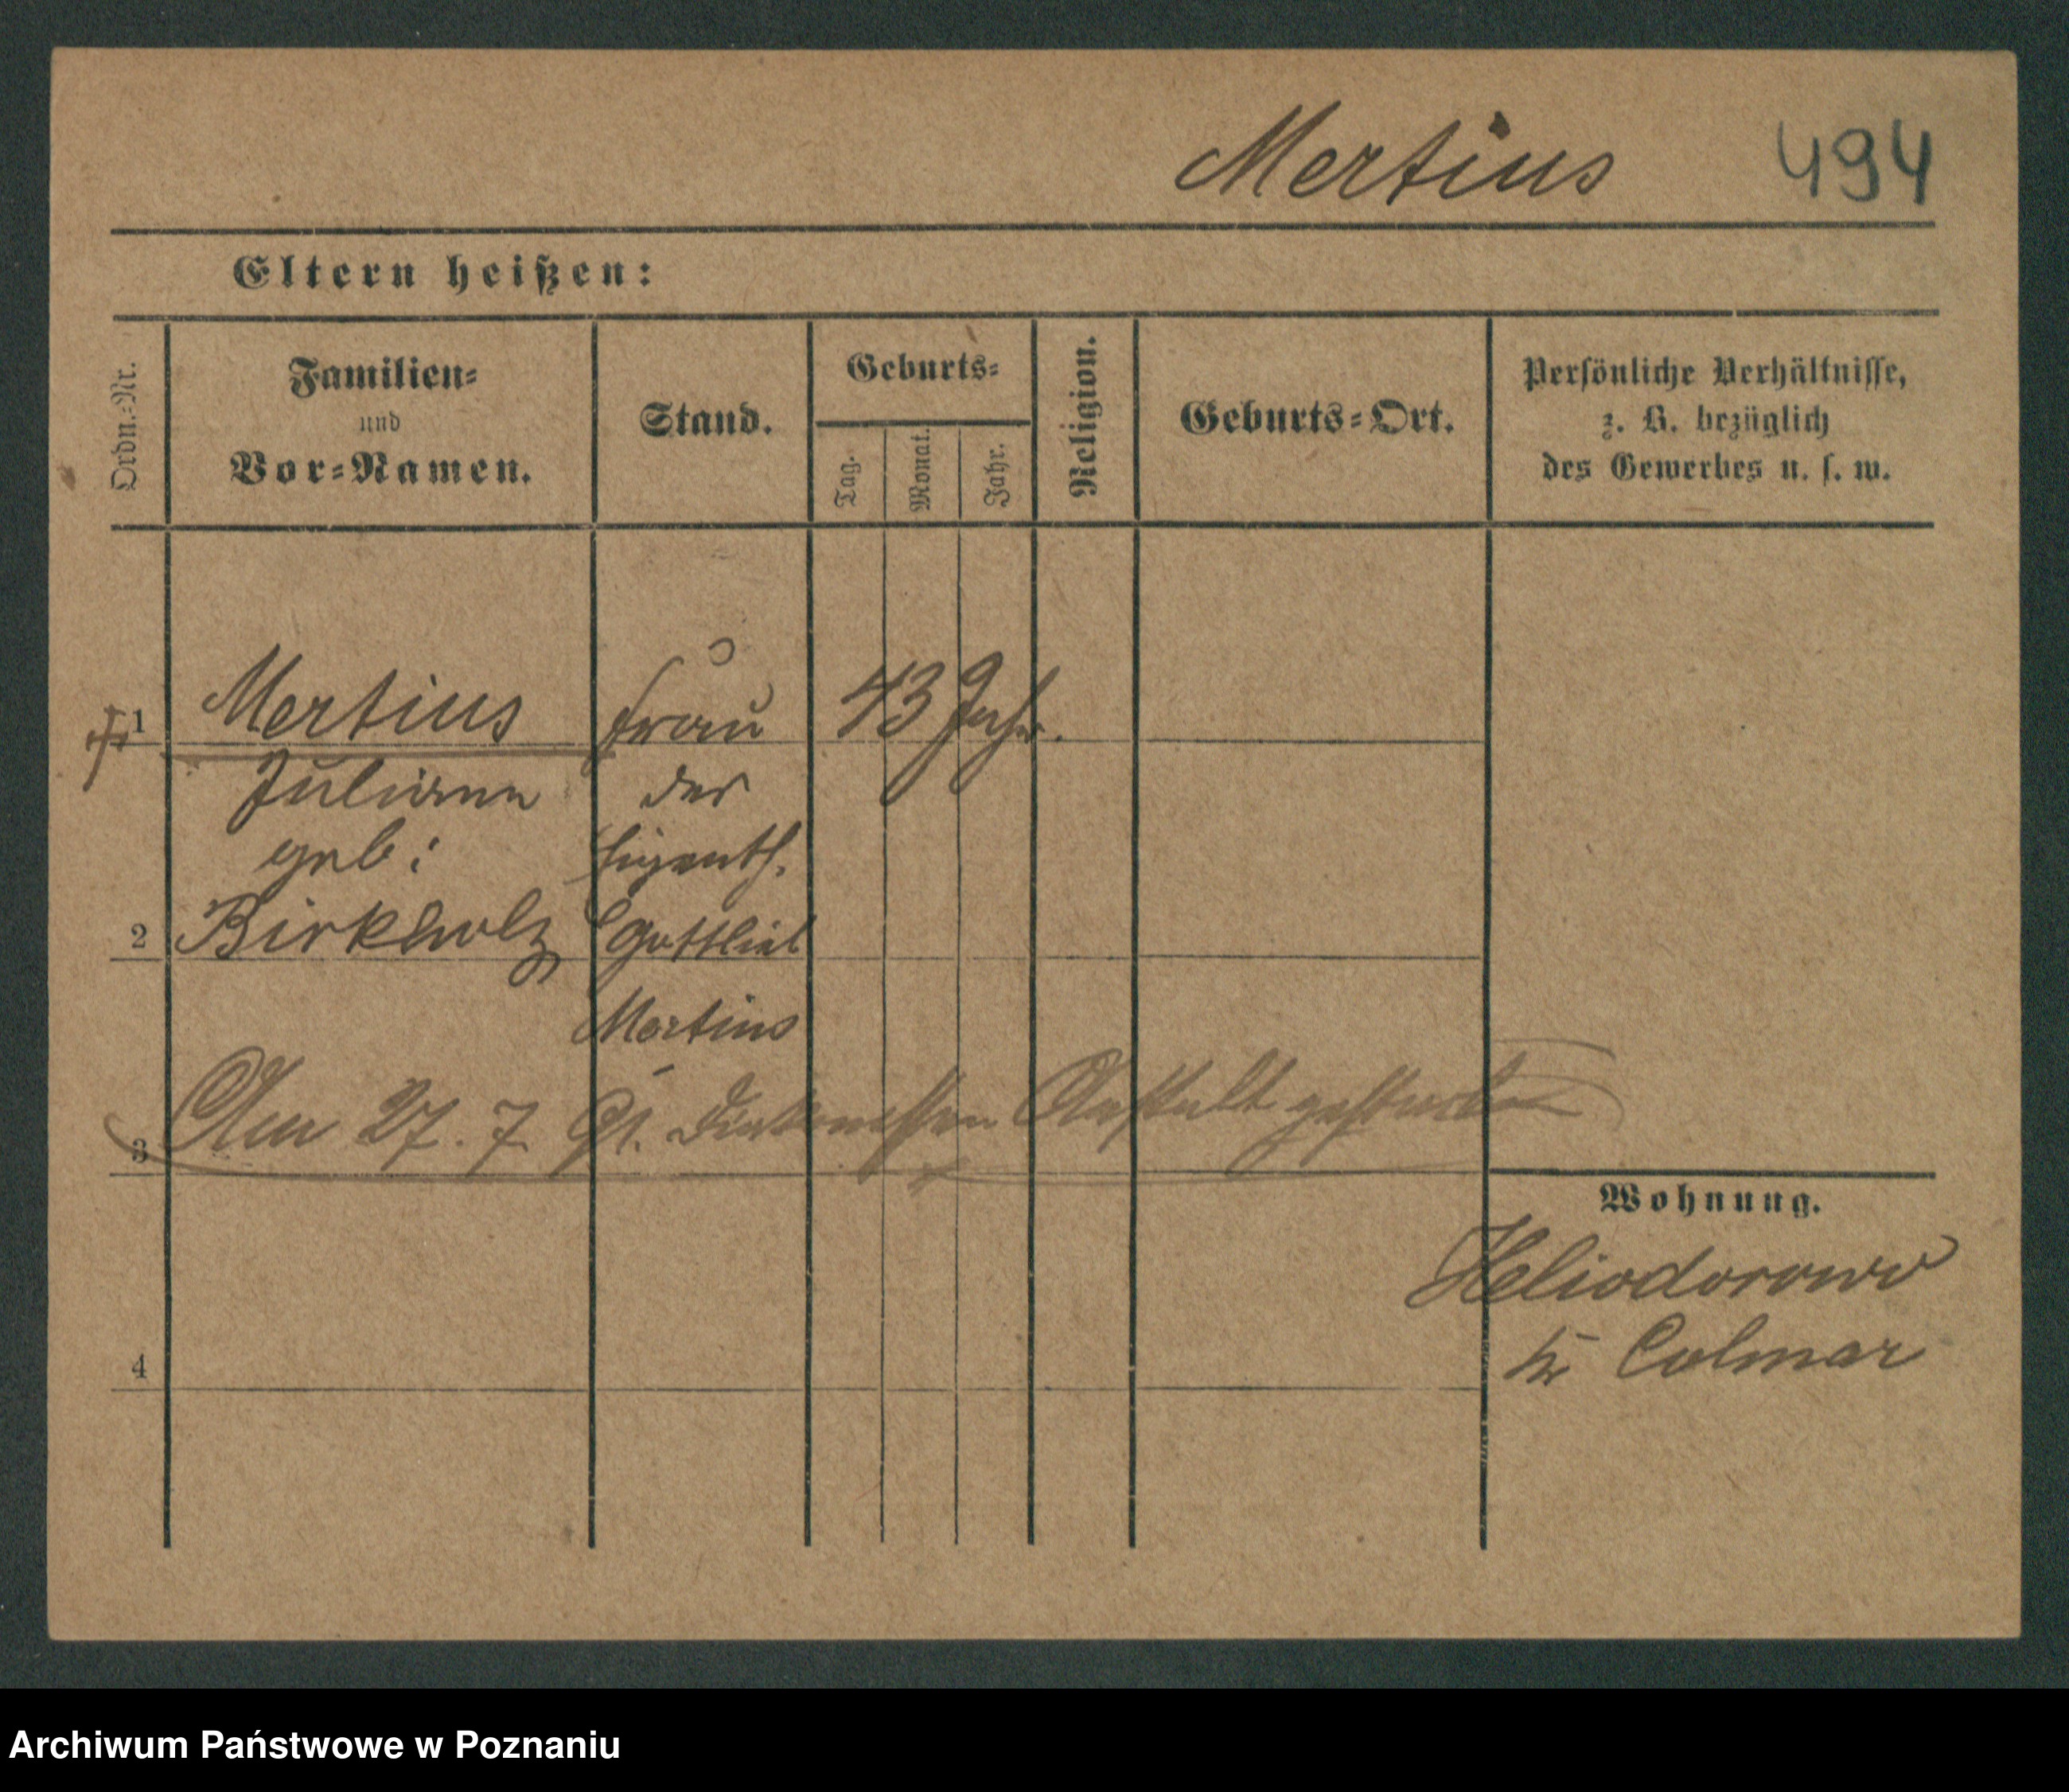 Mertius 494
Eltern heißen:
Ordn.=Nr.
Familien=
und
Vor=Namen.
Stand.
Geburts=
Tag.
Monat.
Jahr.
Religion.
Geburts=Ort.
Persönliche Verhältnisse,
z. B. bezüglich
des Gewerbes u. s. w.
1 Mertius Frau 43 Jahr.
Juliane der
geb: Eigenth.
2 Birkholz Gottlieb
Mertius
3 Am 27. 7. 91. Diakonissen Anstalt gestorben
Wohnung.
Heliodorowo
Kr Colmar
4
Archiwum Państwowe w Poznaniu